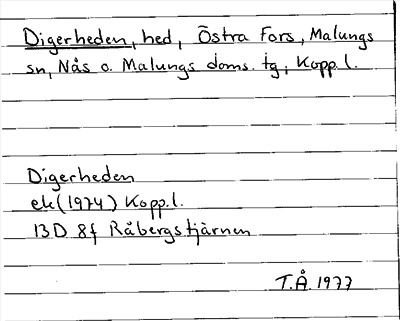 Digerheden, hed, Östra Fors, Malungs
sn, Nås o. Malungs doms. tg, Kopp. l.
Digerheden
ek (1974) Kopp. l.
13D 8f Råbergstjärnen
T.Å. 1977